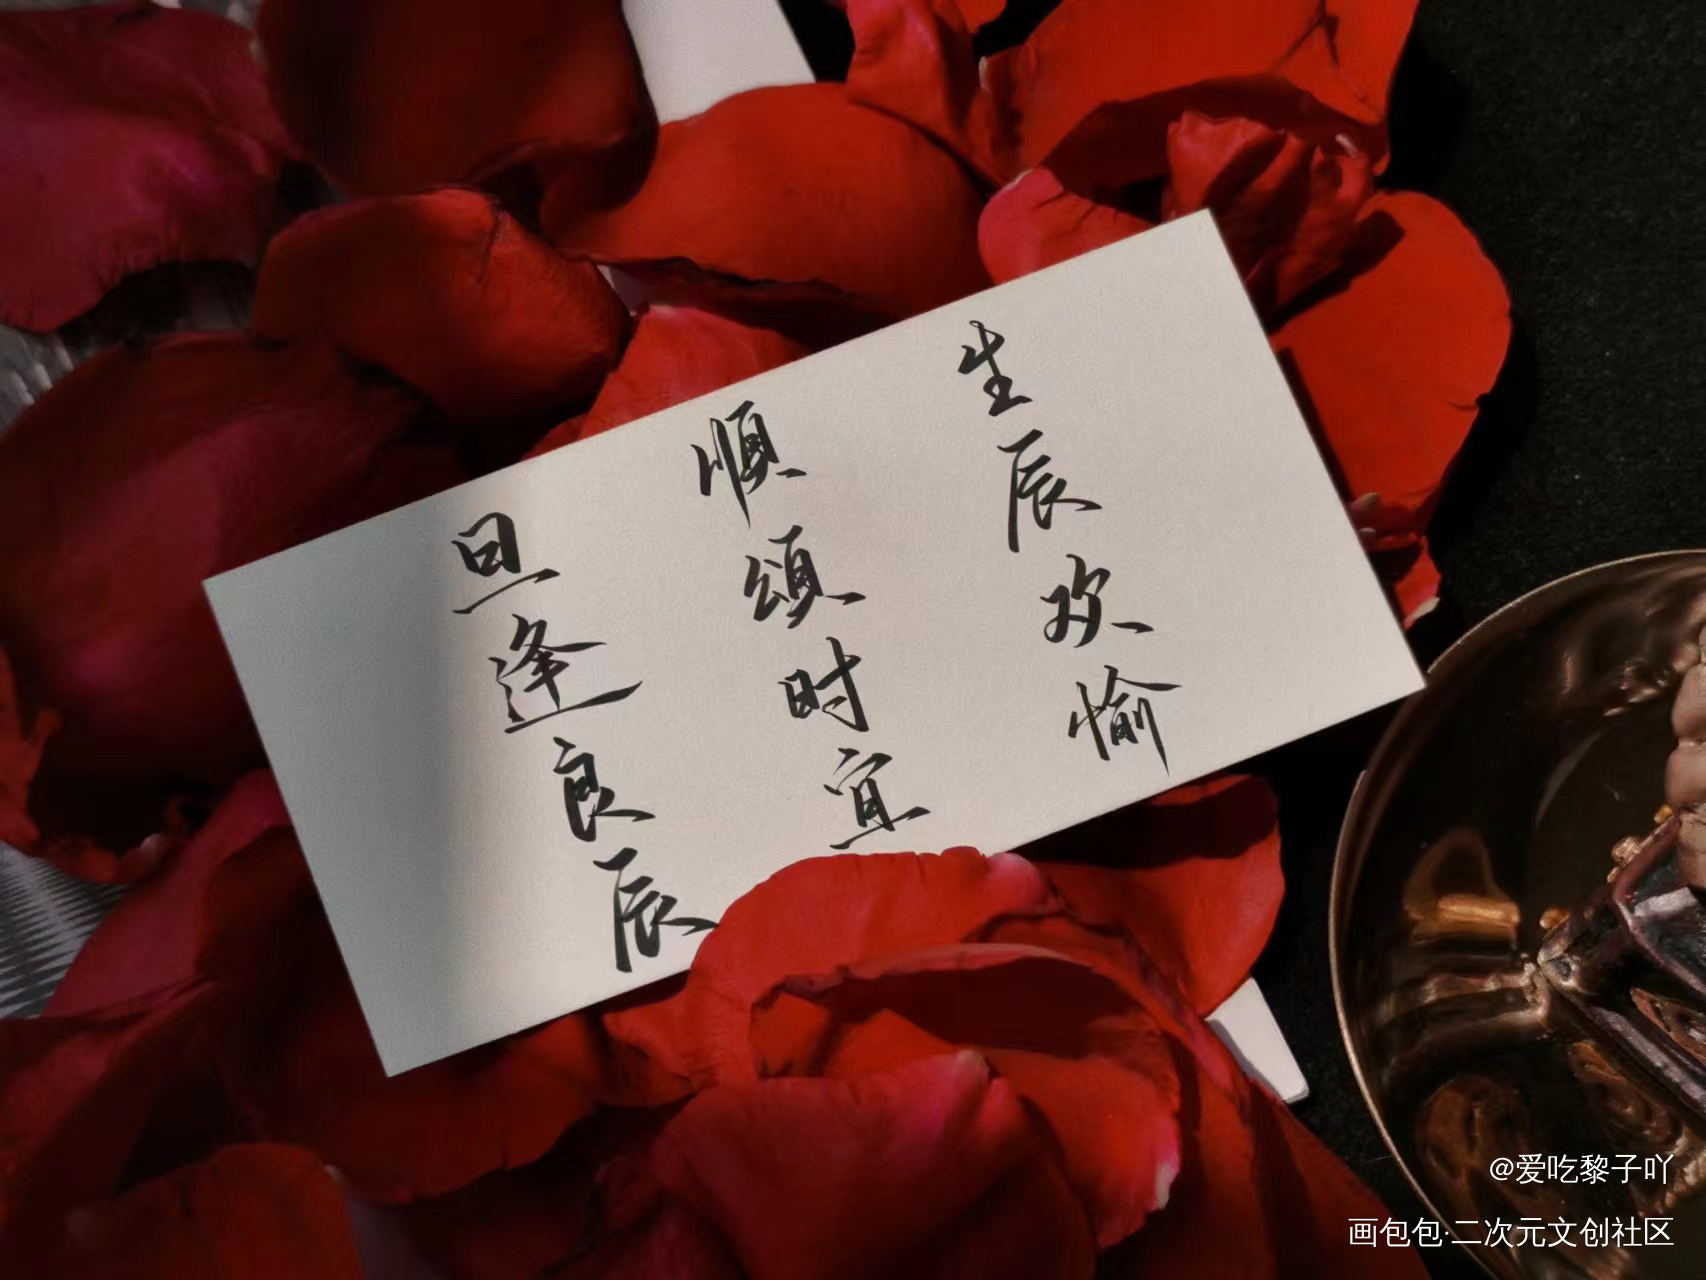 生辰欢愉
順頌时宜
旦逢良辰
@爱吃黎子吖
画包包·二次元文创社区